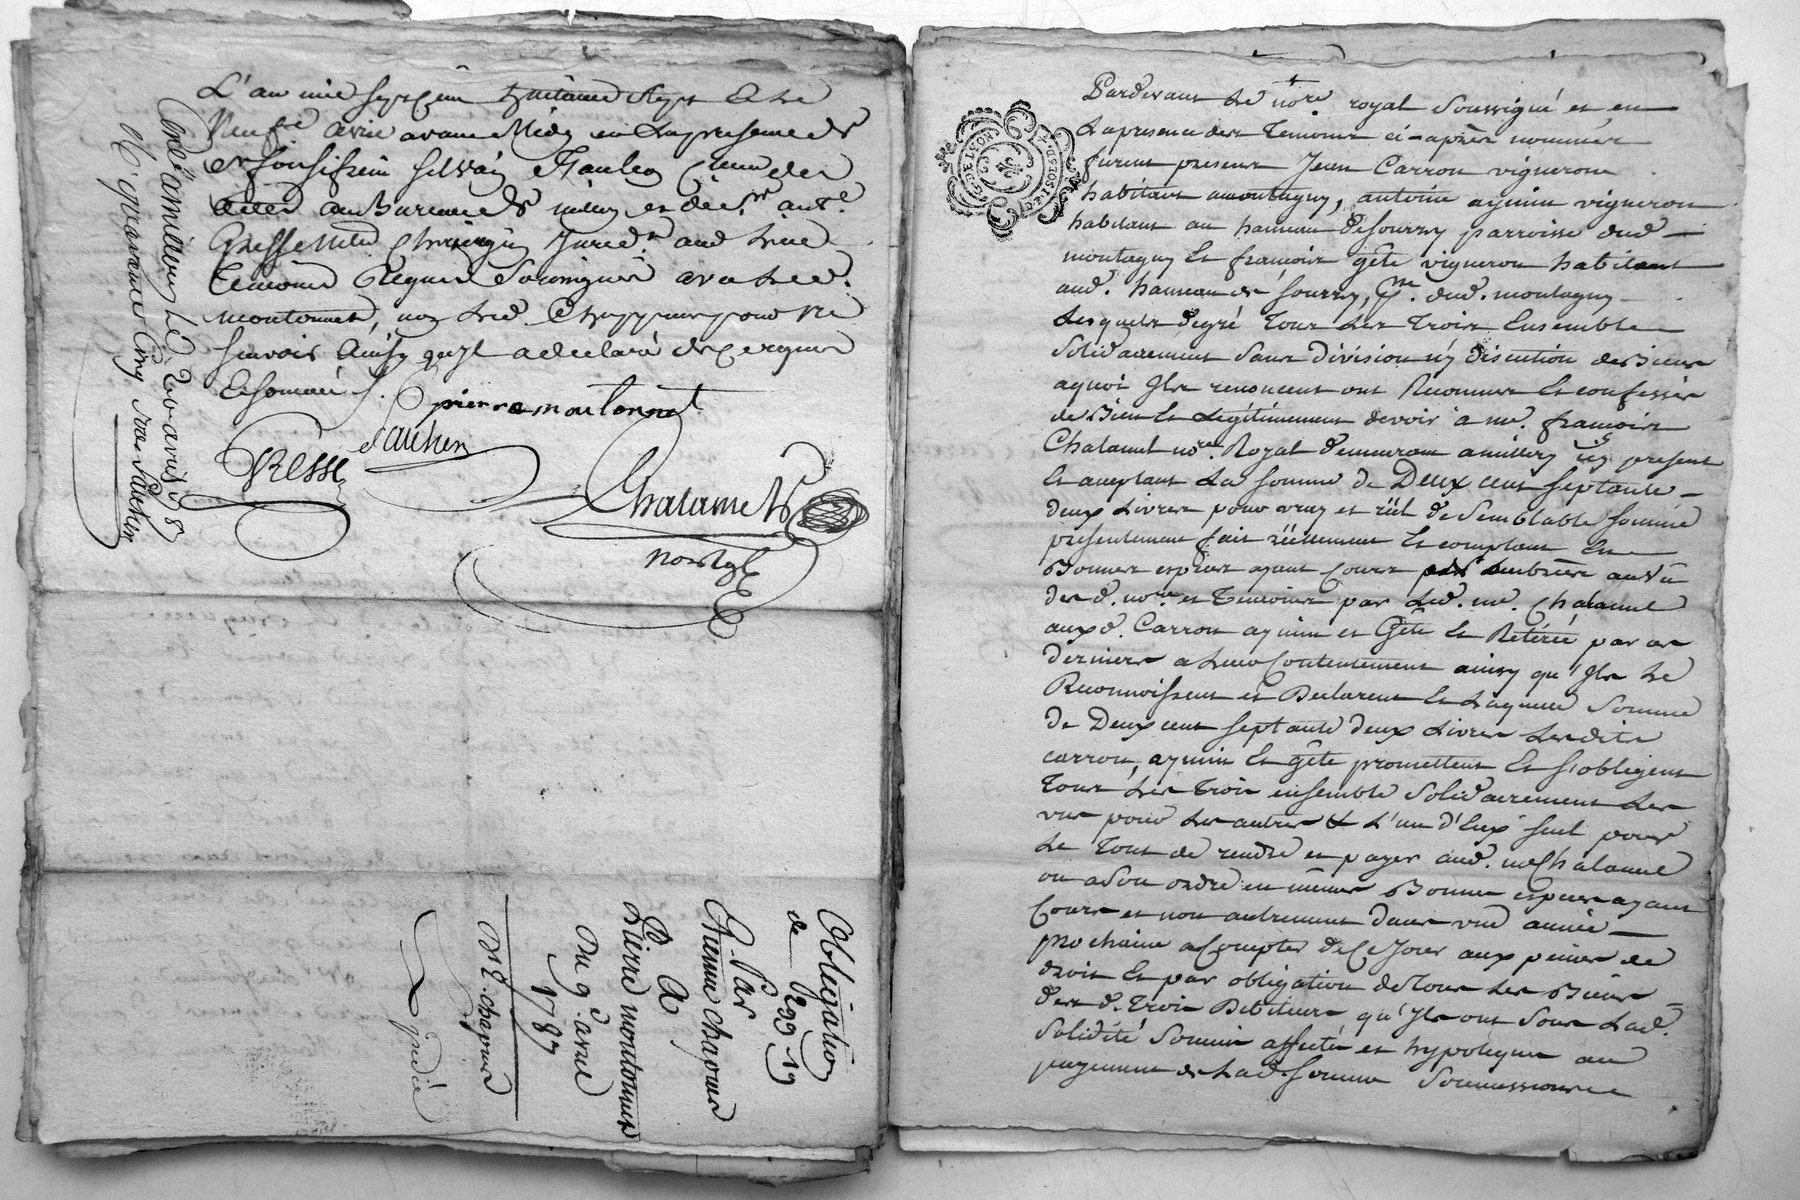 L'an mil sept cent huitante sept et le
neuf avril avant Midy en la presence de
Sr
actes au Bureau de millery et de Sr ant.
Gresse chirurgien juré
temoins Requis Soussignés avec led.
montonnet, non led Chapuis pour ne
sçavoir ainsy qu'il a declaré de ce requis
et sommé ./.
pierre montonnet
Sauthen
Gresse
Chalamel
nore Ryl
Controllé a millery le 20 avril 1787
Rç quarante cinq sols Sauthen
Obligation
de 299 19
Par
Etienne chapuis
A
Pierre montonnet
Du 9e. avril
1787
Dt. chapuis
Expedié
G. DE LYON
Pardevant le nore royal Soussigné et en
La presence des temoins ci-après nommés
furent presens Jean Carron vigneron
habitant a montagny, antoine aymin vigneron
habitant au hameau de Sourzy parroisse dud
montagny et françois gête vigneron habitant
aud. hameau de Sourzy, psse. dud. montagny
Lesquels de gré tous les trois Ensemble
Solidairement Sans division ny discution de Biens
a quoi Ils renoncent ont Reconnus et confessés
de Bien et Légitimement devoir a me. françois
Chalamel nore. Royal demeurant a millery icy present
et acceptant La somme de Deux cent septante
deux Livres pour vray et réel de Semblable somme
presentement fait réellement et comptant en
Bonnes especes ayant cours au vû
des d. nore et temoins par led. me. Chalamel
auxd. Carron aymin et Gête et Retirée par ces
derniers a leur Contentement ainsy qu'Ils le
Reconnoissent et Declarent et Laquelle Somme
de Deux cent septante deux Livres lesdits
carron, aymin et gête promettent et s'obligent
tous les trois ensemble Solidairement les
uns pour les autres & L'un d'Eux seul pour
le tout de rendre et payer aud. me Chalamel
ou a son ordre en mêmes Bonnes especes ayant
Cours et non autrement dans une année
prochaine a Compter de Ce Jour aux peines de
droit et par obligation de tous les Biens
des d. trois Debiteurs qu'Ils ont sous lad.
Solidité Soumis affectés et hypotequés au
payement de Lad. somme Soumissions